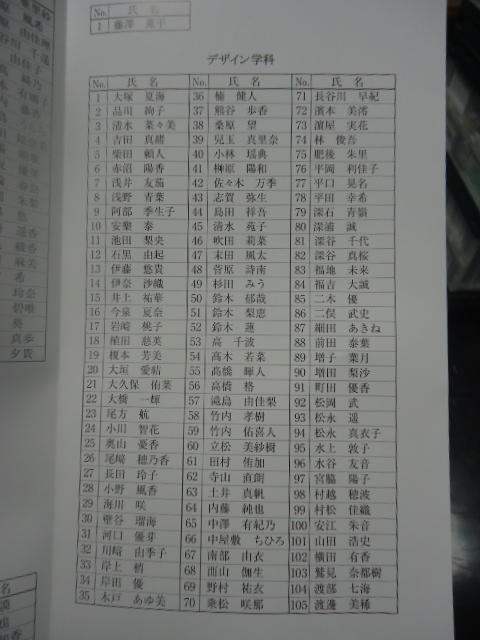 No. 氏 名
1 藤澤 薫平
デザイン学科
No. 氏 名 No. 氏 名 No. 氏 名
1 大塚 夏海 36 楠 健人 71 長谷川 早紀
2 品川 絢子 37 熊谷 歩香 72 濱本 美澪
3 清水 菜々美 38 桑原 望 73 濵屋 実花
4 吉田 真緒 39 兒玉 真里奈 74 林 俊吾
5 柴田 頼人 40 小林 瑞典 75 肥後 朱里
6 赤沼 陽香 41 榊原 陽和 76 平岡 利佳子
7 浅井 友茄 42 佐々木 万季 77 平口 晃名
8 浅野 青葉 43 志賀 弥生 78 平田 幸希
9 阿部 季生子 44 島田 祥吾 79 深石 青嶺
10 安樂 泰 45 清水 苑子 80 深浦 誠
11 池田 梨央 46 吹田 莉菜 81 深谷 千代
12 石黒 由起 47 末田 風太 82 深谷 真桜
13 伊藤 悠貴 48 菅原 詩南 83 福地 未来
14 伊奈 沙織 49 杉田 みう 84 福吉 大誠
15 井上 祐華 50 鈴木 郁哉 85 二木 優
16 今泉 夏奈 51 鈴木 梨恵 86 二俣 武史
17 岩崎 桃子 52 鈴木 蓮 87 細田 あきね
18 植田 慈英 53 高 千波 88 前田 泰葉
19 榎本 芳美 54 高木 若菜 89 増子 葉月
20 大垣 愛結 55 高橋 暉人 90 増田 梨沙
21 大久保 侑菜 56 高橋 格 91 町田 優香
22 大橋 一輝 57 滝島 由佳梨 92 松岡 武
23 尾方 航 58 竹内 孝樹 93 松永 遥
24 小川 智花 59 竹内 佑喜人 94 松永 真衣子
25 奥山 憂香 60 立松 美紗樹 95 水上 敦子
26 尾﨑 穂乃香 61 田村 侑加 96 水谷 友音
27 長田 玲子 62 寺山 直朗 97 宮脇 陽子
28 小野 風香 63 土井 真帆 98 村越 穂波
29 海川 咲 64 内藤 純也 99 村松 佳織
30 壁谷 瑠海 65 中澤 有紀乃 100 安江 朱音
31 河口 優芽 66 中屋敷 ちひろ 101 山田 浩史
32 川﨑 由季子 67 南部 由衣 102 横田 有香
33 岸上 梢 68 西山 伽生 103 鷲見 奈都樹
34 岸田 優 69 野村 祐衣 104 渡部 七海
35 木戸 あゆ美 70 乗松 咲耶 105 渡邊 美稀